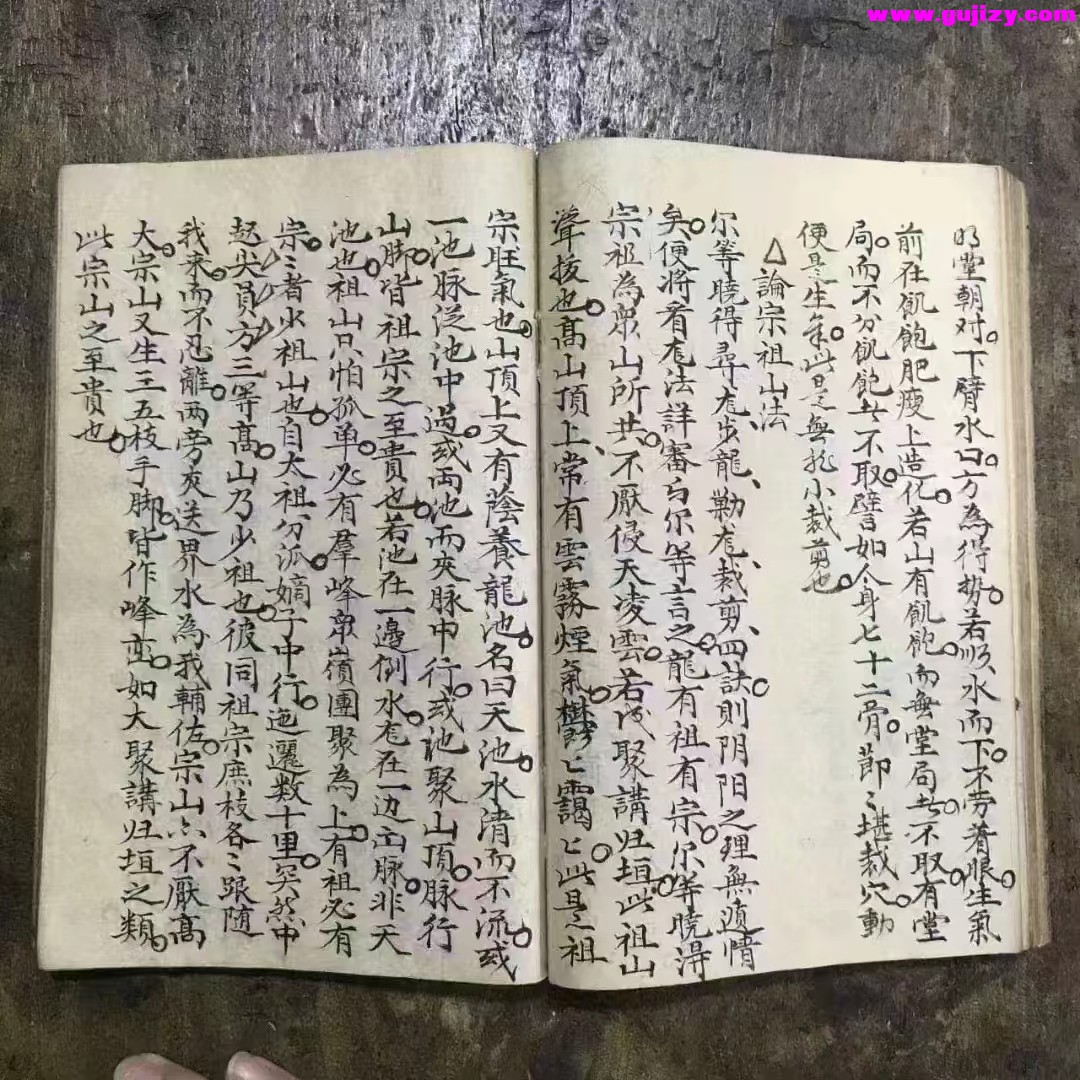 www.gujizy.com
明堂朝对。下臂水口方為得势。若順水而下。不劳着眼。生氣
前在飢飽肥瘦上造化。若山有飢飽。而無堂局者不取。有堂
局。而不分飢飽者不取。譬如人身七十二骨節〻堪裁穴。動
便是生氣。此是無挖小裁剪也。
△論宗祖山法
尔等曉得尋龙步龍、勒龙裁剪、四訣。則阴阳之理無遺情
矣。便將看龙法詳審与尔等言之。龍有祖有宗。尔等曉得
宗祖為眾山所共。不厭侵天凌雲。若成聚講归垣。此祖山
聳拔也。高山頂上、常有雲霧煙氣。欝〻靄〻。此是祖
宗旺氣也。山頂上又有蔭養龍池。名曰天池。水清而不流。或
一池脉從池中過。或両池而夾脉中行。或池聚山頂。脉行
山脚。皆祖宗之至貴也。若池在一邊倒水。龙在一边出脉。非天
池也。祖山只怕孤单。必有羣峰眾嶺團聚為上。有祖必有
宗。〻者少祖山也。自太祖分派嫡子中行。迤邐数十里。突然中
起尖員方三等高。山乃少祖也。彼同祖宗庶枝各〻跟随
我来。而不忍離。两旁夾送界水為我輔佐。宗山亦不厭高
大。宗山又生三五枝手脚。皆作峰峦。如大聚講归垣之類。
此宗山之至貴也。